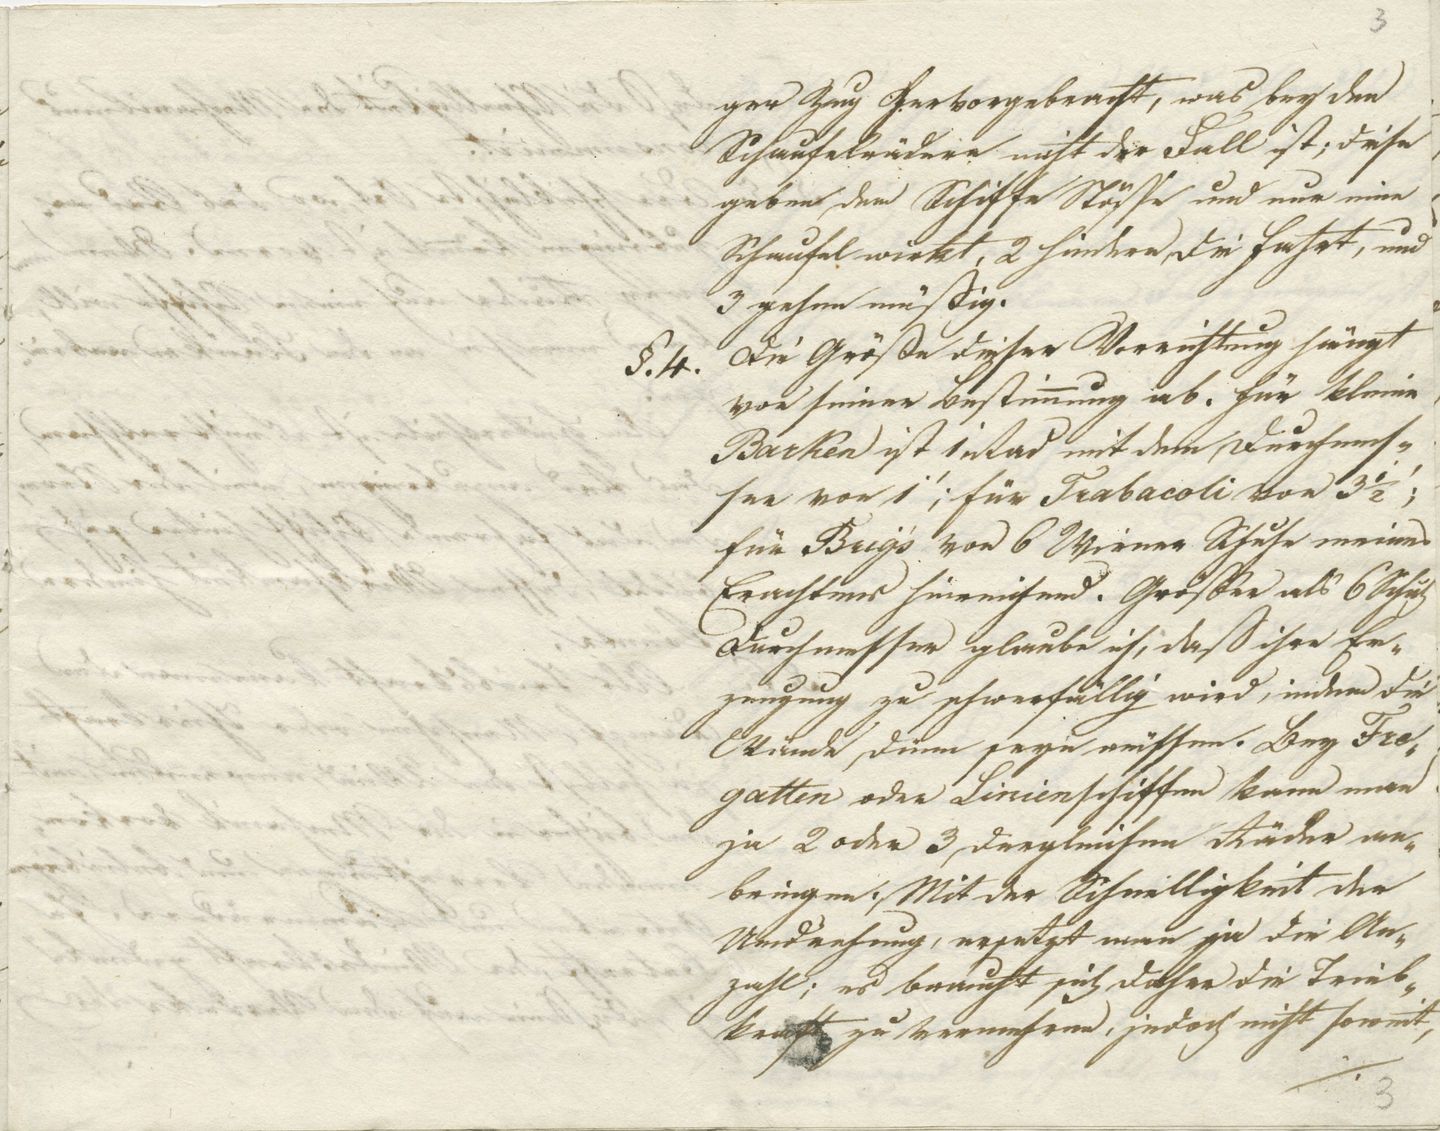 3
ger Zug hervorgebracht, was bey den
Schaufelrädern nicht der Fall ist; diese
geben dem Schiffe Stöße und nur eine
Schaufel wirkt, 2 hindern die Fahrt, und
3 gehen müßig.
§. 4. Die Größe dieser Vorrichtung hängt
von seiner Bestimmung ab. Für kleine
Barken ist 1 Rad mit dem Durchmes-
ser von 1'; für Trabacoli von 3½';
für Brigs von 6 Wiener Schuhe meines
Erachtens hinreichend. Größer als 6 Schuh
Durchmesser glaube ich, daß ihre Er-
zeugung zu schwerfällig wird, indem die
Wände dünn seyn müssen. Bey Fre-
gatten oder Linienschiffen kann man
ja 2 oder 3 dergleichen Räder an-
bringen; Mit der Schnelligkeit der
Umdrehung, ersetzt man ja die An-
zahl; es braucht sich daher die Trieb-
kraft zu vermehren, jedoch nicht soweit,
3